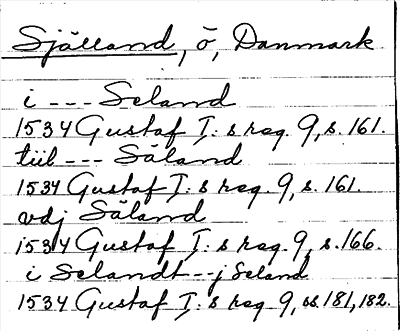 Själland, ö, Danmark
i --- Seland
1534 Gustaf I:s reg. 9, s. 161.
tiil --- Säland
1534 Gustaf I:s reg. 9, s. 161.
vdj Säland
1534 Gustaf I:s reg. 9, s. 166.
i Selandt -- j Seland
1534 Gustaf I:s reg. 9, ss. 181, 182.